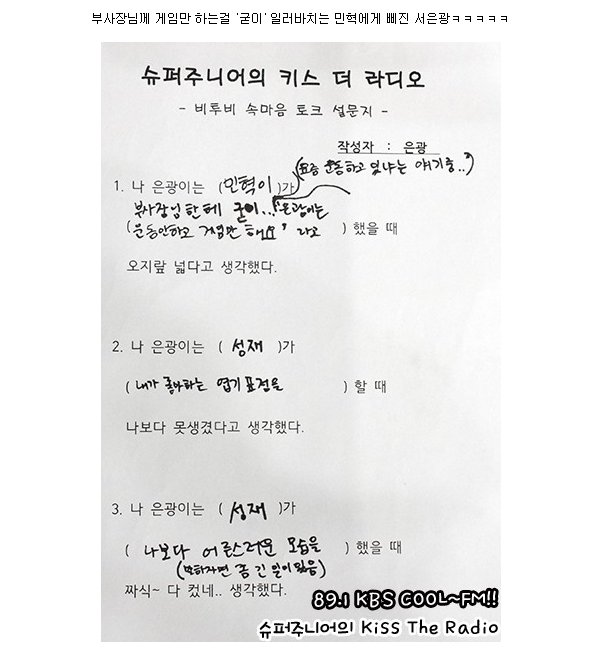 부사장님께 게임만 하는걸 '굳이' 일러바치는 민혁에게 삐진 서은광ㅋㅋㅋㅋㅋ
슈퍼주니어의 키스 더 라디오
- 비투비 속마음 토크 설문지 -
작성자 : 은광
(요즘 운동하고 있냐는 얘기중..)
1. 나 은광이는 ( 민혁이 )가
부사장님한테 굳이... '은광이는
( 운동안하고 게임만 해요' 라고 ) 했을 때
오지랖 넓다고 생각했다.
2. 나 은광이는 ( 성재 )가
( 내가 좋아하는 엽기표정을 ) 할 때
나보다 못생겼다고 생각했다.
3. 나 은광이는 ( 성재 )가
( 나보다 어른스러운 모습을 ) 했을 때
(말하자면 좀 긴 일이 있음)
짜식~ 다 컸네.. 생각했다.
89.1 KBS COOL~FM!!
슈퍼주니어의 Kiss The Radio